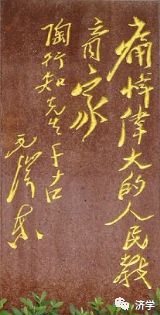 痛悼偉大的人民教
育家
陶行知先生千古
毛澤東
济学